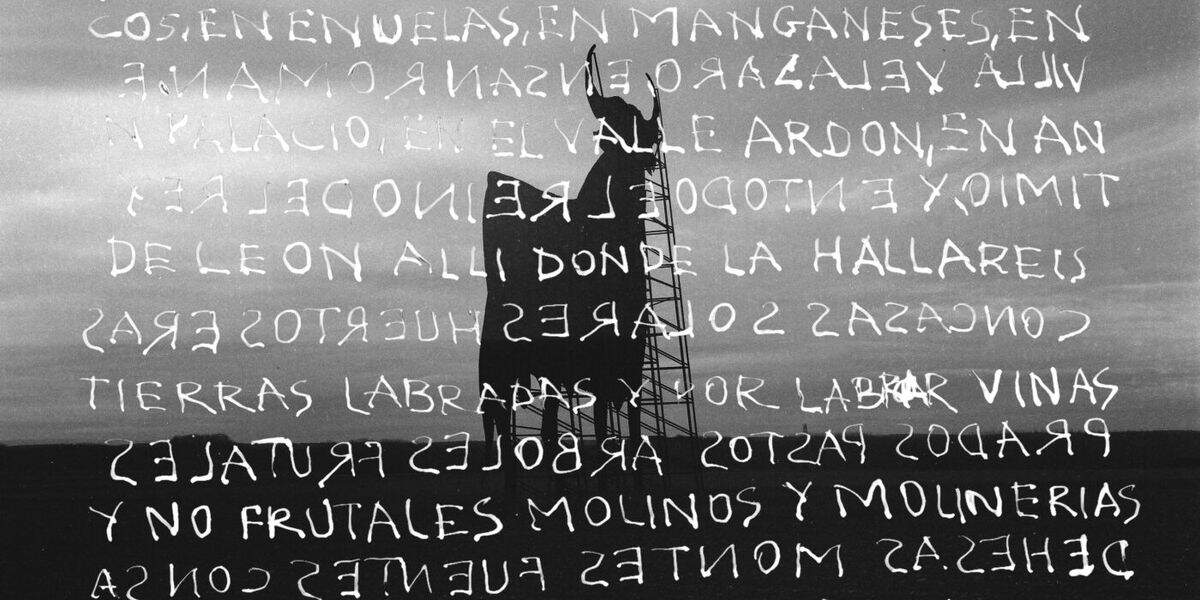 COS, EN ENUELAS, EN MANGANESES, EN
VILLA VELAZARO, EN SAN ROMAN, E
N PALACIO, EN EL VALLE ARDON, EN AN
TIMIO, Y EN TODO EL REINO DEL REY
DE LEON ALLI DONDE LA HALLAREIS
CON CASAS SOLARES HUERTOS ERAS
TIERRAS LABRADAS Y POR LABRAR VINAS
PRADOS PASTOS ARBOLES FRUTALES
Y NO FRUTALES MOLINOS Y MOLINERIAS
DEHESAS MONTES FUENTES CON SA